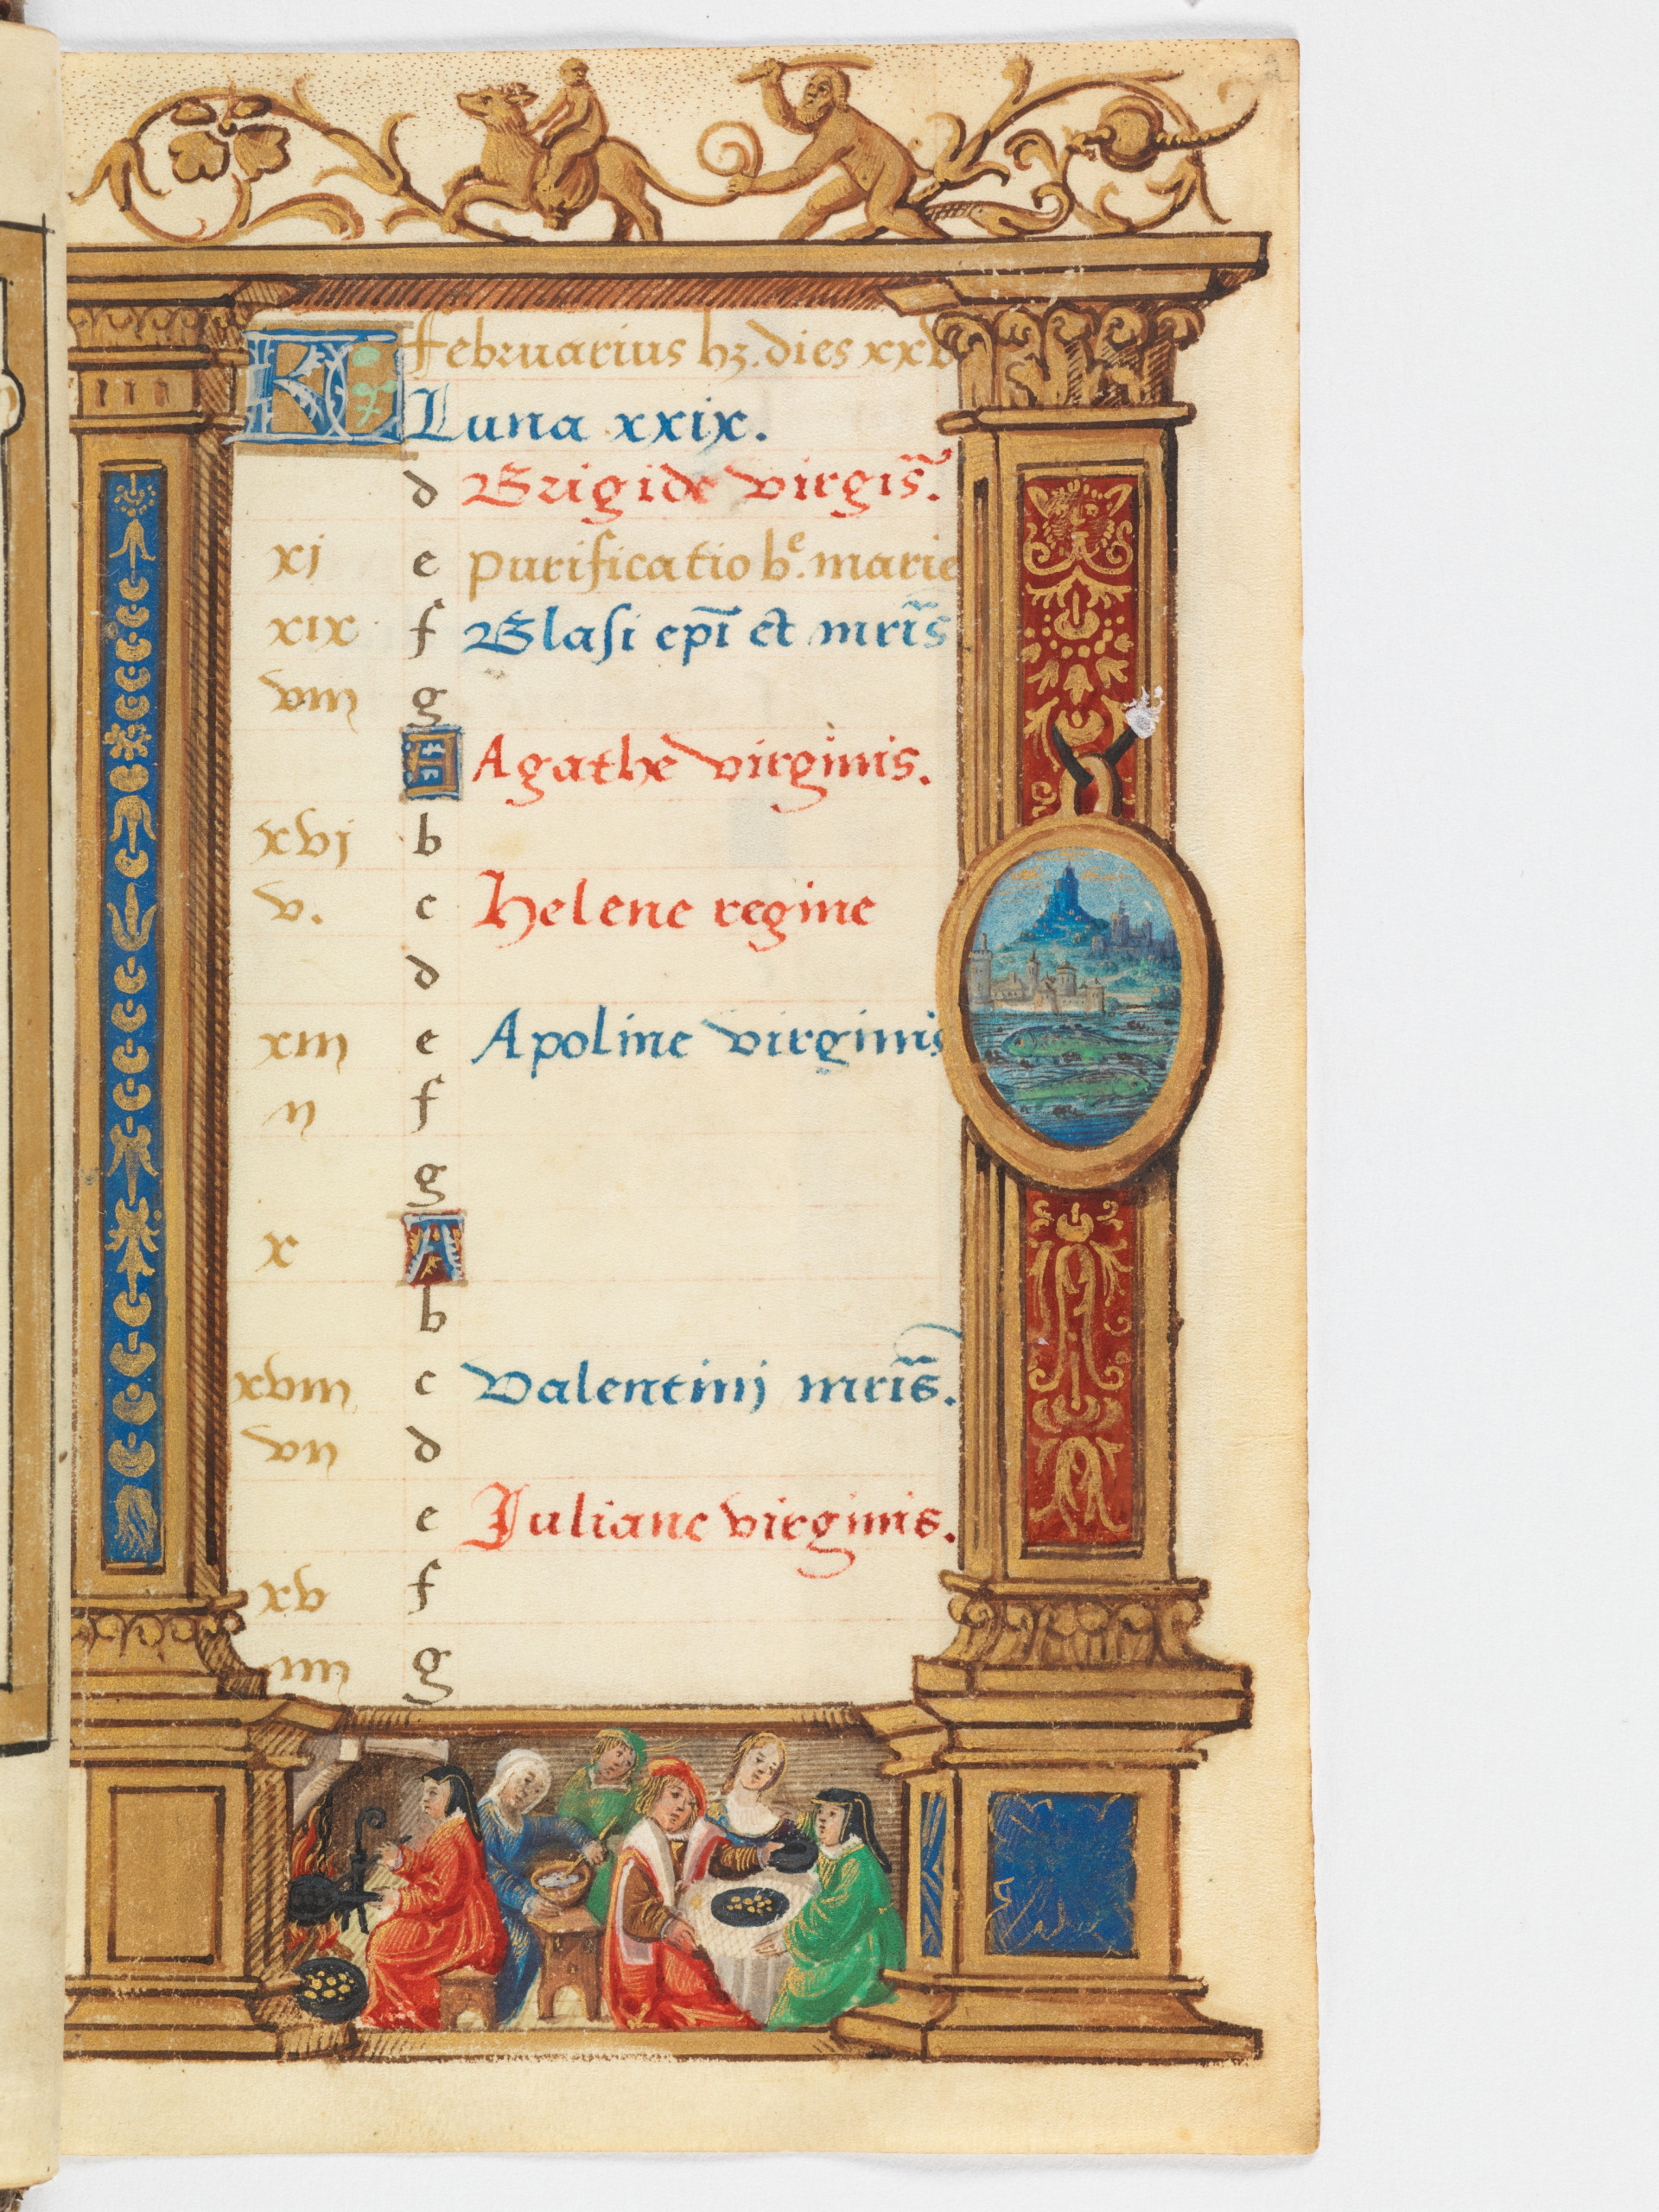 KL februarius hz. dies xxv
Luna xxix.
d Brigide virgis̃.
xj e purificatio bᵉ. marie
xix f Blasi epī et mrĩs
viii g
A Agathe virginis.
xvj b
v. c Helene regine
d
xiii e Apoline virginis
ii f
g
x A
b
xviii c Valentinj mrĩs.
vii d
e Juliane virginis.
xv f
iiii g